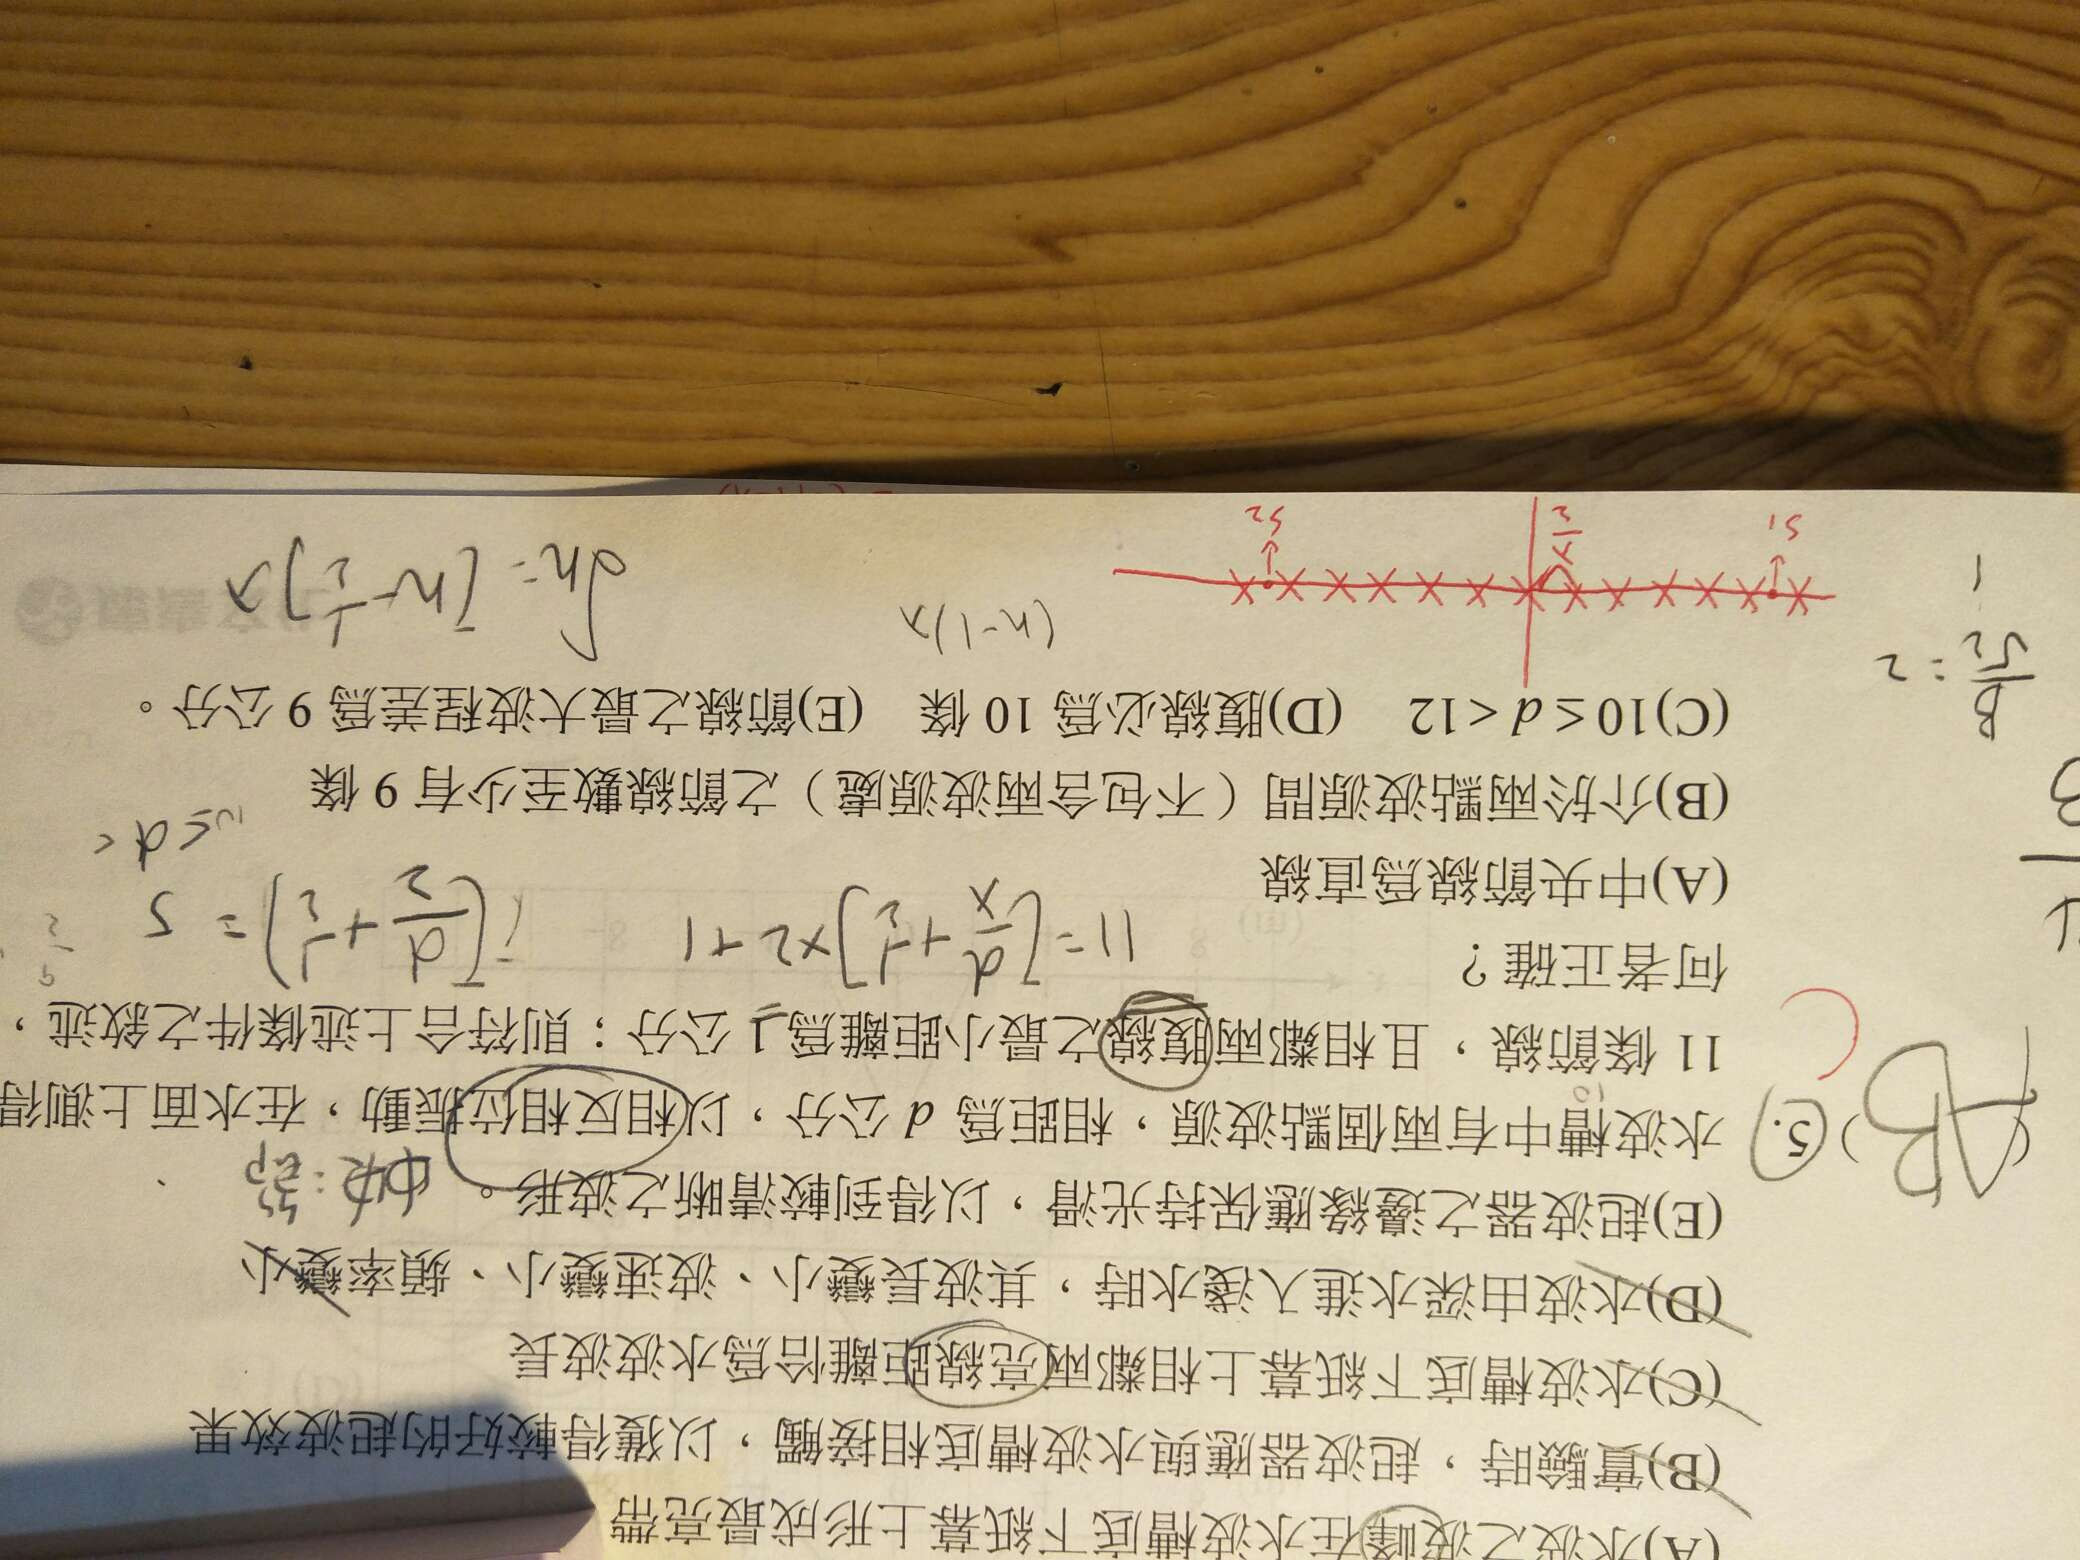 (A)水波之波峰在水波槽底下紙幕上形成最亮帶
(B)實驗時，起波器應與水波槽底相接觸，以獲得較好的起波效果
(C)水波槽底下紙幕上相鄰兩亮線距離恰為水波波長
(D)水波由深水進入淺水時，其波長變小、波速變小、頻率變小
(E)起波器之邊緣應保持光滑，以得到較清晰之波形。
中央：節
(AB) 5. 水波槽中有兩個點波源，相距為 d 公分，以相反相位振動，在水面上測得
11 條節線，且相鄰兩腹線之最小距離為 1 公分；則符合上述條件之敘述，
何者正確？
11=[d/λ+1/2]×2+1
[d/2+1/2]=5
10≤d<
(A)中央節線為直線
(B)介於兩點波源間（不包含兩波源處）之節線數至少有 9 條
(C)10≤d<12 (D)腹線必為 10 條 (E)節線之最大波程差為 9 公分。
(n-1)λ
dn=[n-1/2]λ
S1
λ/2
S2